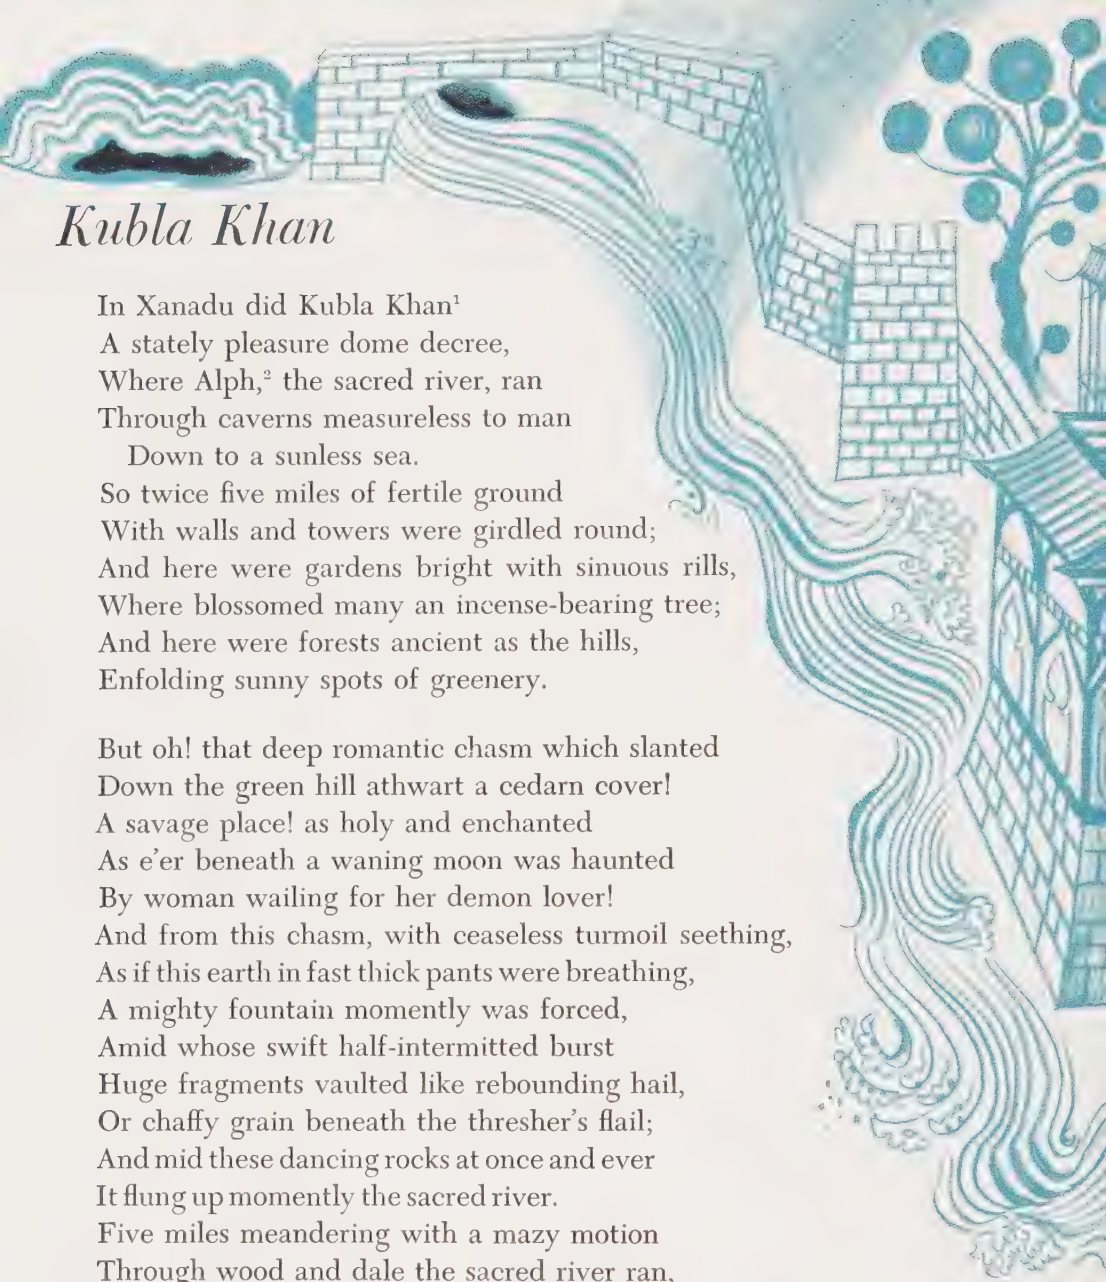 Kubla Khan
In Xanadu did Kubla Khan¹
A stately pleasure dome decree,
Where Alph,² the sacred river, ran
Through caverns measureless to man
Down to a sunless sea.
So twice five miles of fertile ground
With walls and towers were girdled round;
And here were gardens bright with sinuous rills,
Where blossomed many an incense-bearing tree;
And here were forests ancient as the hills,
Enfolding sunny spots of greenery.
But oh! that deep romantic chasm which slanted
Down the green hill athwart a cedarn cover!
A savage place! as holy and enchanted
As e’er beneath a waning moon was haunted
By woman wailing for her demon lover!
And from this chasm, with ceaseless turmoil seething,
As if this earth in fast thick pants were breathing,
A mighty fountain momently was forced,
Amid whose swift half-intermitted burst
Huge fragments vaulted like rebounding hail,
Or chaffy grain beneath the thresher’s flail;
And mid these dancing rocks at once and ever
It flung up momently the sacred river.
Five miles meandering with a mazy motion
Through wood and dale the sacred river ran,